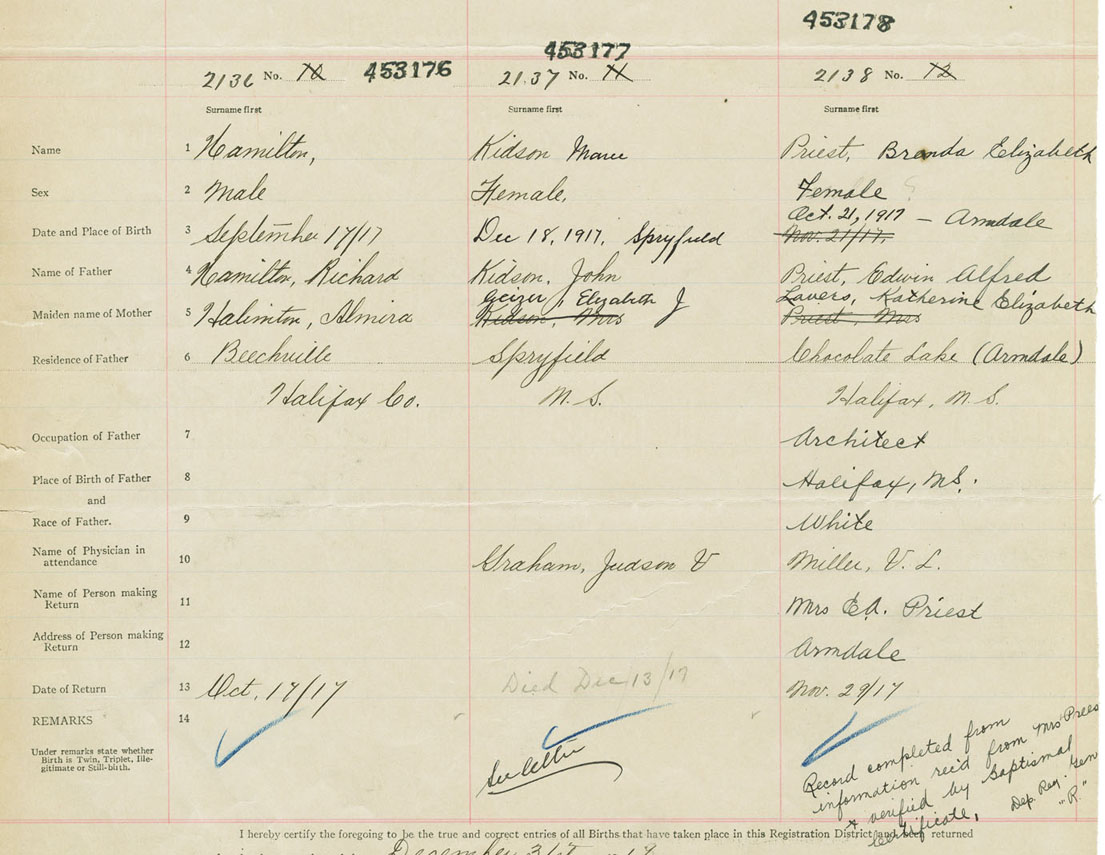 453178
453177
2136 No. 10 453176 2137 No. 11 2138 No. 12
Surname first Surname first Surname first
Name 1 Hamilton, Kidson Marie Priest, Brenda Elizabeth
Sex 2 Male Female, Female ?
Oct. 21, 1917 — Armdale
Date and Place of Birth 3 September 17/17 Dec 18, 1917, Spryfield Nov. 21/17.
Name of Father 4 Hamilton, Richard Kidson, John Priest, Edwin Alfred
Geizer, Elizabeth J Lavers, Katherine Elizabeth
Maiden name of Mother 5 Halimton, Almira Kidson, Mrs Priest, Mrs
Residence of Father 6 Beechville Spryfield Chocolate Lake (Armdale)
Halifax Co. N. S. Halifax, N. S.
Occupation of Father 7 Architect
Place of Birth of Father 8 Halifax, N.S.
and
Race of Father. 9 White
Name of Physician in
attendance 10 Graham, Judson V Miller, V. L.
Name of Person making
Return 11 Mrs E.A. Priest
Address of Person making
Return 12 Armdale
Date of Return 13 Oct. 17/17 Died Dec 13/17 Nov. 29/17
REMARKS 14
Under remarks state whether
Birth is Twin, Triplet, Ille-
gitimate or Still-birth.
See letter
Record completed from
information rec'd from Mrs Priest
& verified by Baptismal
certificate,
Dep. Reg. Gen
"R."
I hereby certify the foregoing to be the true and correct entries of all Births that have taken place in this Registration District and been returned
December 31st